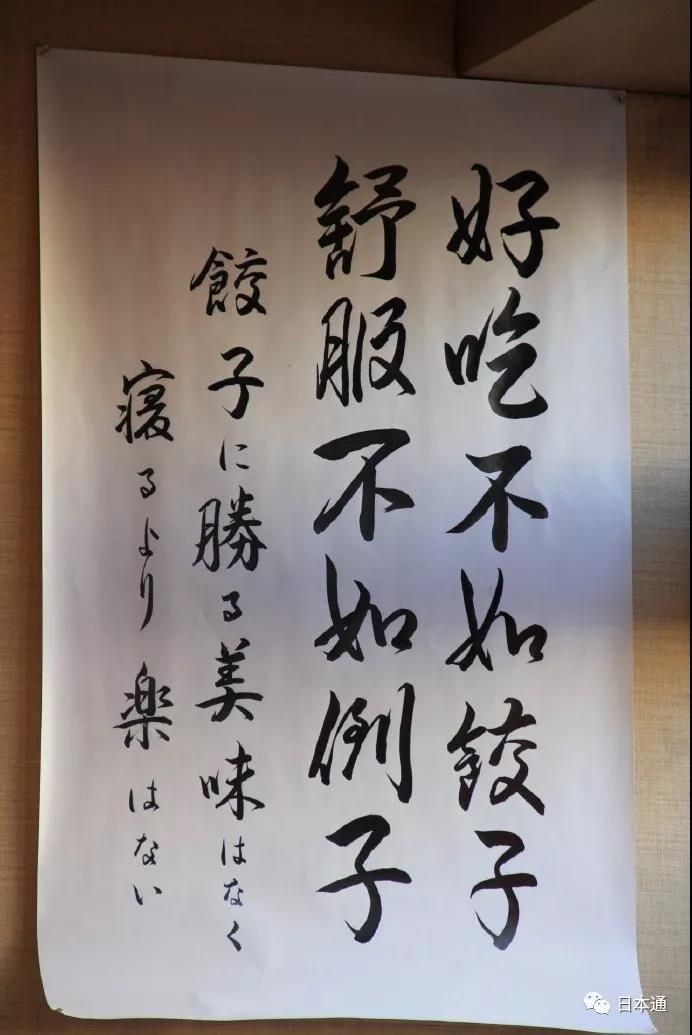 好吃不如餃子
舒服不如倒子
餃子に勝る美味はなく
寝るより楽はない
日本通